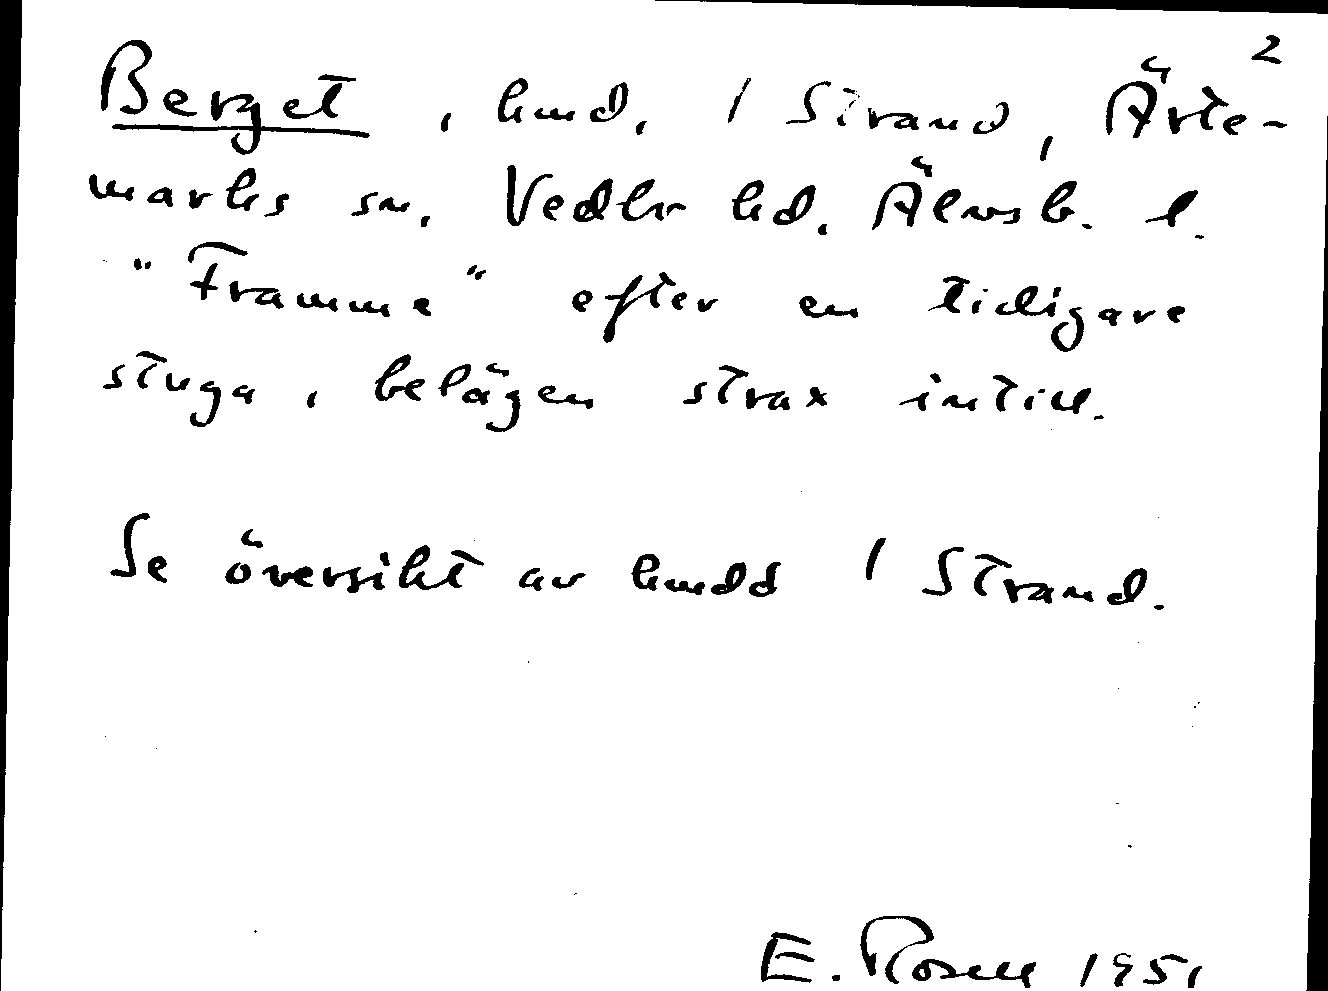 2
Berget, hmd, 1 Strand, Ärte-
marks sn. Vedbo hd. Älvsb. l.
"Framme" efter en tidigare
stuga, belägen strax intill.
Se översikt av hmdd 1 Strand.
E. Rosell 1951